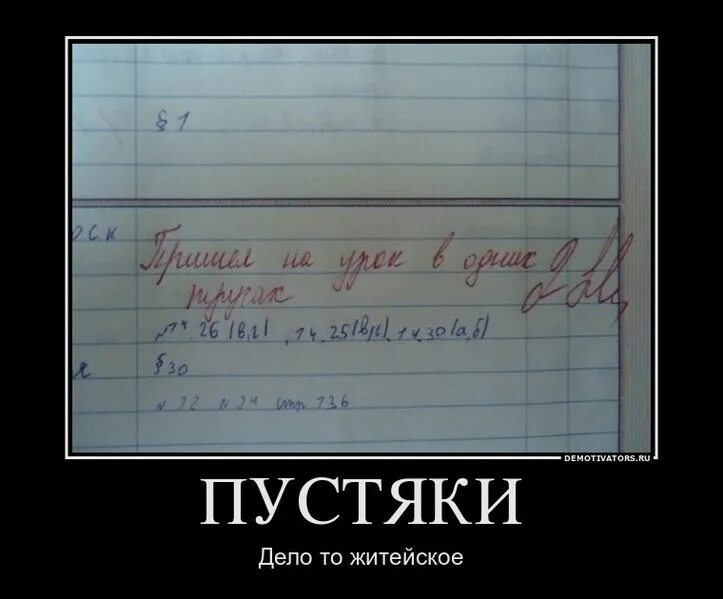 § 1
Пришел на урок в одних
трусах 2
14.26 (в,г), 14.25 (в,г), 14.30 (а,б)
§ 30
стр 136
DEMOTIVATORS.RU
ПУСТЯКИ
Дело то житейское